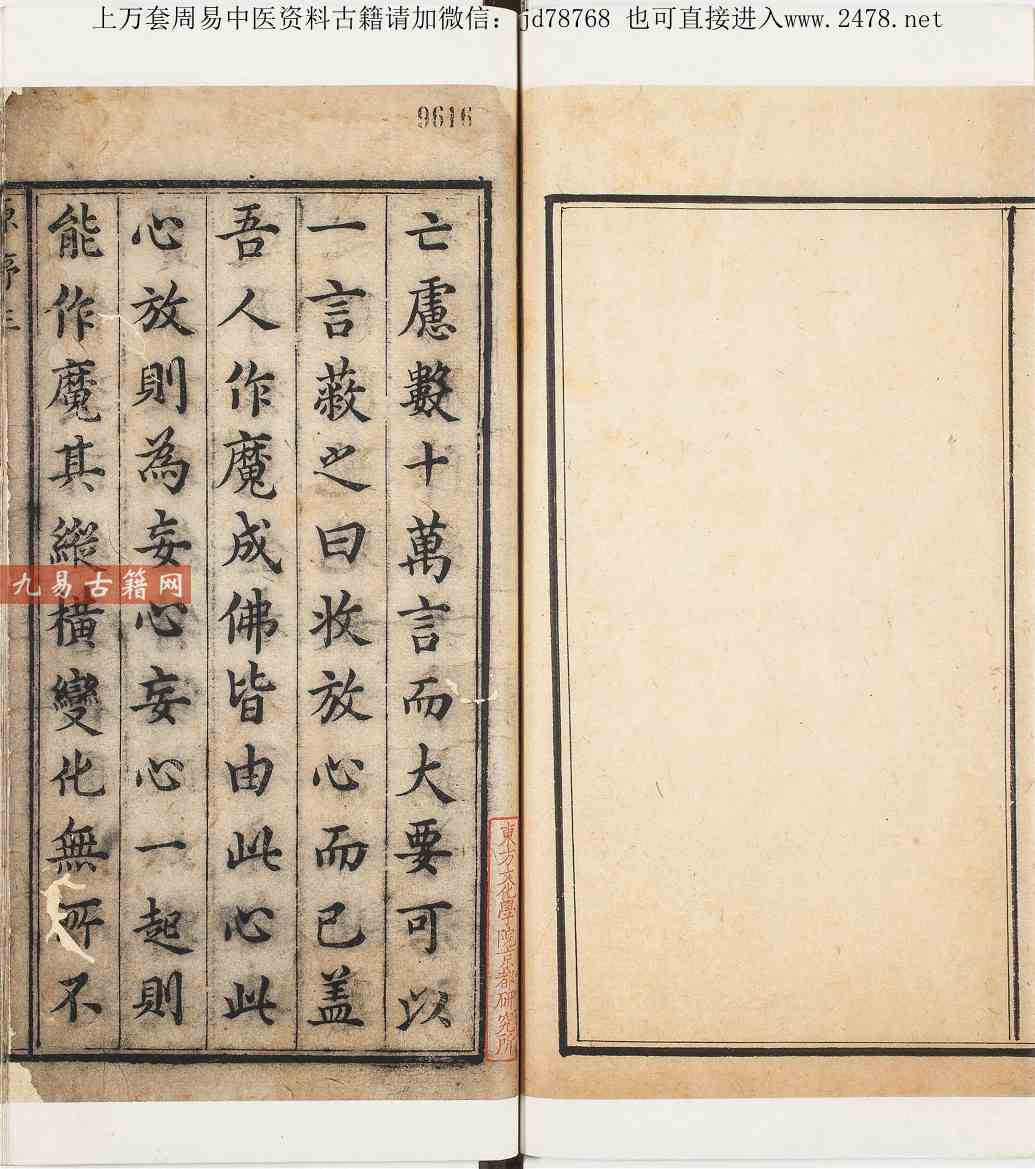 上万套周易中医资料古籍请加微信：jd78768 也可直接进入www.2478.net
9616
亡慮數十萬言而大要可以
一言蔽之曰收放心而已蓋
吾人作魔成佛皆由此心此
心放則為妄心妄心一起則
能作魔其縱橫變化無所不
序
東方文化學院京都研究所
九易古籍网